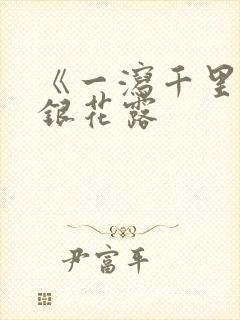 《一瀉千里
銀花露
尹富平